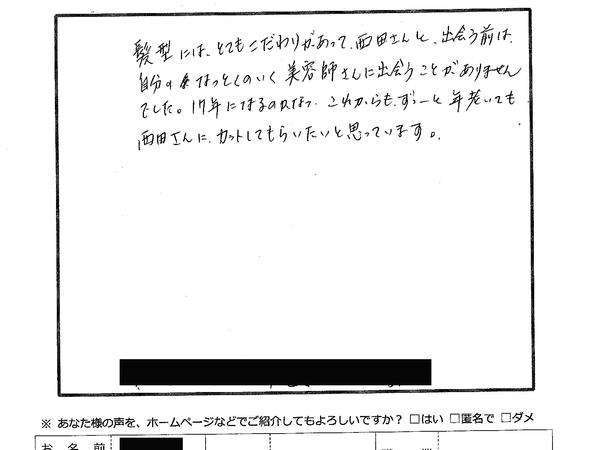 髪型には、とてもこだわりがあって、西田さんと、出会う前は、
自分の なっとくのいく 美容師さんに出会うことがありません
でした。17年になるのかなっ これからも、ずぅーと 年老いても
西田さんに、カットしてもらいたいと思っています。
※ あなた様の声を、ホームページなどでご紹介してもよろしいですか？ □はい □匿名で □ダメ
お 名 前